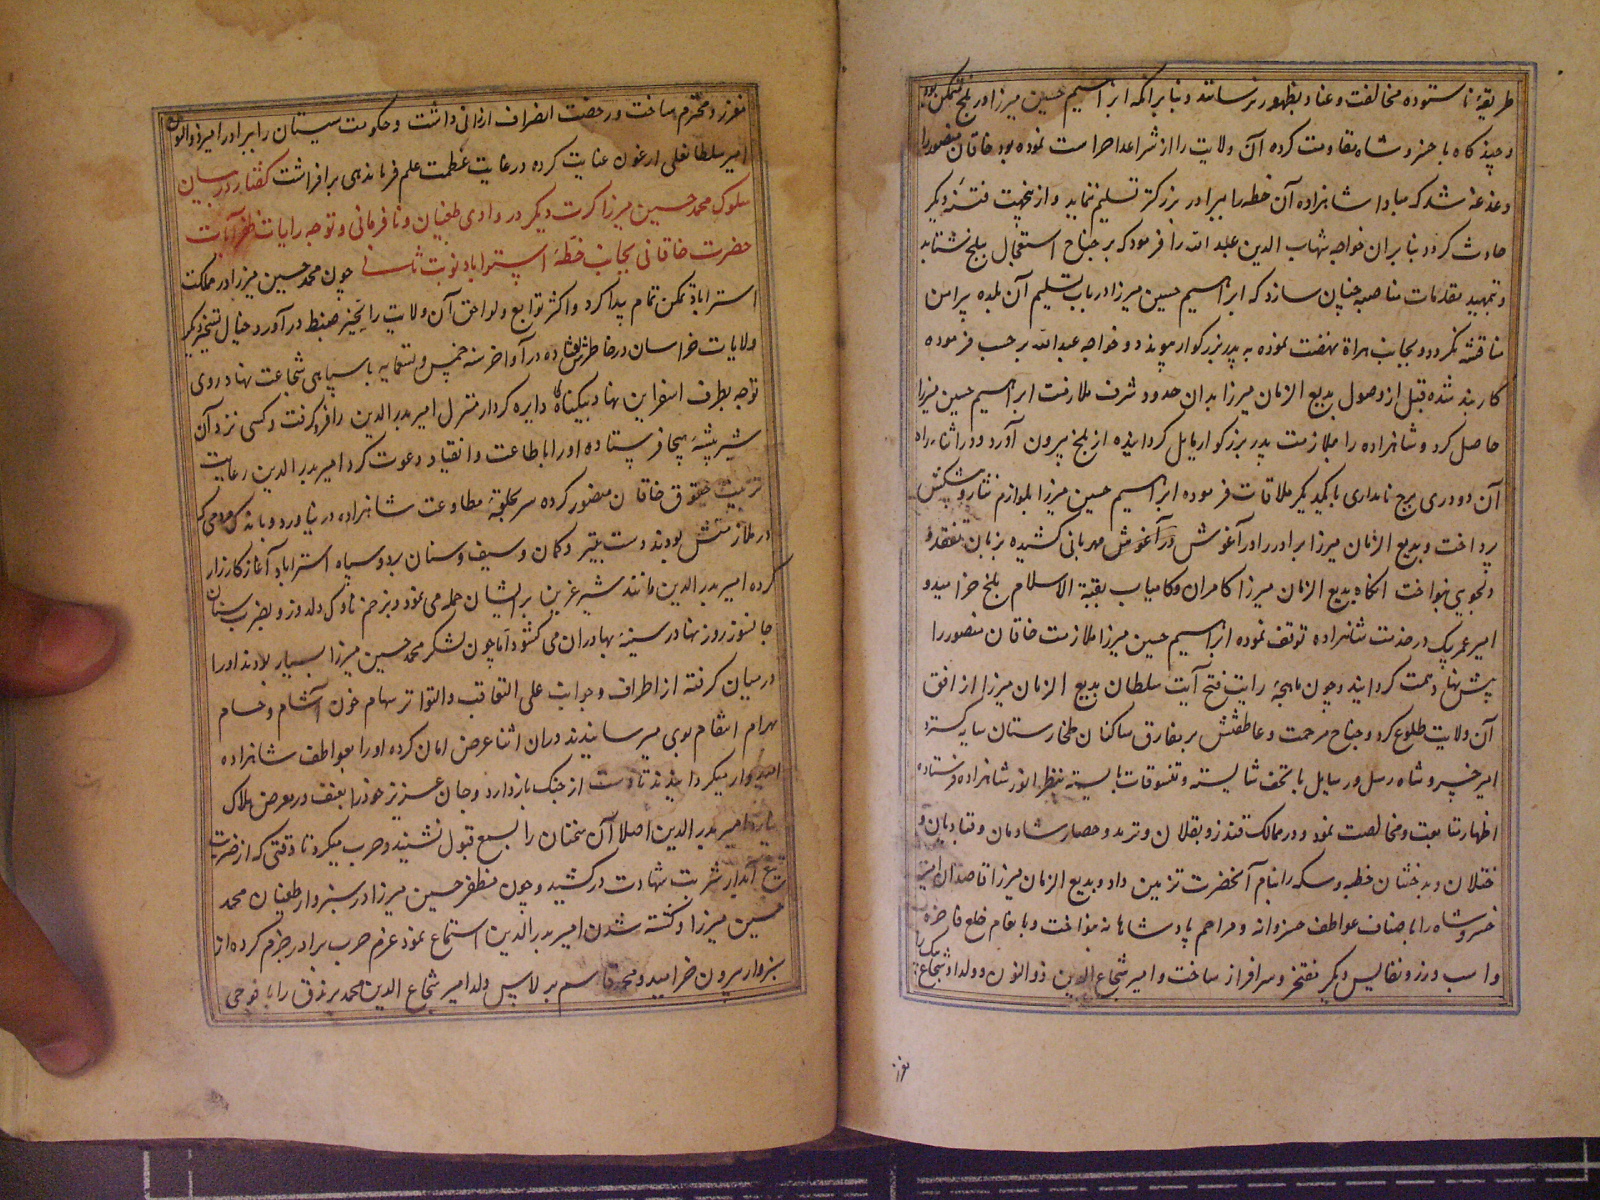 طریقهٔ ناستوده مخالفت و عناد بظهور نرسانند و بنا برانکه ابراهیم حسین میرزا در بلخ متمکن بود
و چند کاه با خسرو شاه مقاومت کرده آن ولایت را از شر اعدا حراست نموده بود خاقان منصور را
دغدغه شد که مبادا شاهزاده آن خطه را ببرادر بزرکتر تسلیم ننماید و از ینجهت فتنهٔ دیکر
حادث کردد بنا بران خواجه شهاب الدین عبد الله را فرمود که بر جناح استعجال ببلخ شتابد
و تمهید مقدمات مناصبه چنان سازد که ابراهیم حسین میرزا در باب تسلیم آن بلده پیرامن
مناقشه نکردد و بجانب هراة نهضت نموده به پدر بزرکوار پیوندد و خواجه عبد الله بر حسب فرموده
کاربند شده قبل از وصول بدیع الزمان میرزا بدان حدود شرف ملازمت ابراهیم حسین میرزا
حاصل کرد و شاهزاده را بملازمت پدر بزرکوار مایل کردانیده از بلخ بیرون آورد و در اثناء راه
آن دو دری برج نامداری با یکدیکر ملاقات فرموده ابراهیم حسین میرزا بلوازم نثار و پیشکش
پرداخت و بدیع الزمان میرزا برادر را در آغوش مهربانی کشیده بزبان تفقد و
دلجویی بنواخت انکاه بدیع الزمان میرزا کامران و کامیاب بقبة الاسلام بلخ خرامید و
امیر عمر بیک در خدمت شاهزاده توقف نموده ابراهیم حسین میرزا ملازمت خاقان منصور را
پیش نهاد همت کردانید و چون ماهچهٔ رایت فتح آیت سلطان بدیع الزمان میرزا از افق
آن ولایت طلوع کرد و جناح مرحمت و عاطفتش بر مفارق ساکنان طخارستان سایه کسترد
امیر خسرو شاه رسل و رسایل با تحف شایسته و تنسوقات بایسته بنظر انور شاهزاده فرستاده
اظهار متابعت و مخالصت نمود و در ممالک قندز و بقلان و ترمد و حصار شادمان و قبادیان و
ختلان و بدخشان خطبه و سکه را بنام آنحضرت تزیین داد و بدیع الزمان میرزا قاصدان امیر
خسرو شاه را باصناف عواطف خسروانه و مراحم پادشاهانه بنواخت و بانعام خلع فاخره
و اسب و زر و نفایس دیکر مفتخر و سرافراز ساخت و امیر شجاع الدین ذوالنون و ولد او شجاع بیک را
معزز و محترم ساخت و رخصت انصراف ارزانی داشت و حکومت سیستان را ببرادر امیر ذوالنون
امیر سلطانعلی ارغون عنایت کرده در غایت عظمت علم فرماندهی برافراشت کفتار در بیان
سلوک محمد حسین میرزا کرت دیکر در وادی طغیان و نافرمانی و توجه رایات ظفر آیات
حضرت خاقانی بجانب خطهٔ استراباد نوبت ثانی چون محمد حسین میرزا در مملکت
استراباد تمکن تمام پیدا کرد و اکثر توابع و لواحق آن ولایت را بحیز ضبط در آورد خیال تسخیر دیکر
ولایات خراسان در خاطرش افتاده در آواخر سنه خمس و تسعمایه با سپاهی شجاعت نهاد روی
توجه بطرف اسفراین نهاد و بیکناکاه دایره کردار منزل امیر بدر الدین را فرو کرفت و کسی نزد آن
شیر بیشهٔ هیجا فرستاده او را باطاعت و انقیاد دعوت کرد امیر بدر الدین رعایت
تربیت حقوق خاقان منصور کرده سر بحلقهٔ مطاوعت شاهزاده در نیاورد و باندک مردمی که
در ملازمتش بودند دست بتیر و کمان و سیف و سنان برد و سپاه استراباد آغاز کارزار
کرده امیر بدر الدین مانند شیر غرین بر ایشان حمله می نمود و بزخم ناوک دلدوز و بضرب سنان
جانسوز روزنها در سینهٔ بهادران می کشود اما چون لشکر محمد حسین میرزا بسیار بودند او را
در میان کرفته از اطراف و جوانب علی التعاقب و التواتر سهام خون آشام و حسام
بهرام انتقام بوی میرسانیدند دران اثنا عرض امان کرده او را بعواطف شاهزاده
امیدوار میکردانیدند تا دست از جنک باز دارد و جان عزیز خود را بعنف در معرض هلاک
نیارد امیر بدر الدین اصلا آن سخنان را بسمع قبول نشنید و حرب میکرد تا وقتی که از ضربت
تیغ آبدار شربت شهادت درکشید و چون مظفر حسین میرزا در سبزوار طغیان محمد
حسین میرزا و کشته شدن امیر بدر الدین استماع نمود عزم حرب برادر جزم کرده از
سبزوار بیرون خرامید و محمد قاسم برلاس ولد امیر شجاع الدین محمد برندق را با فوجی